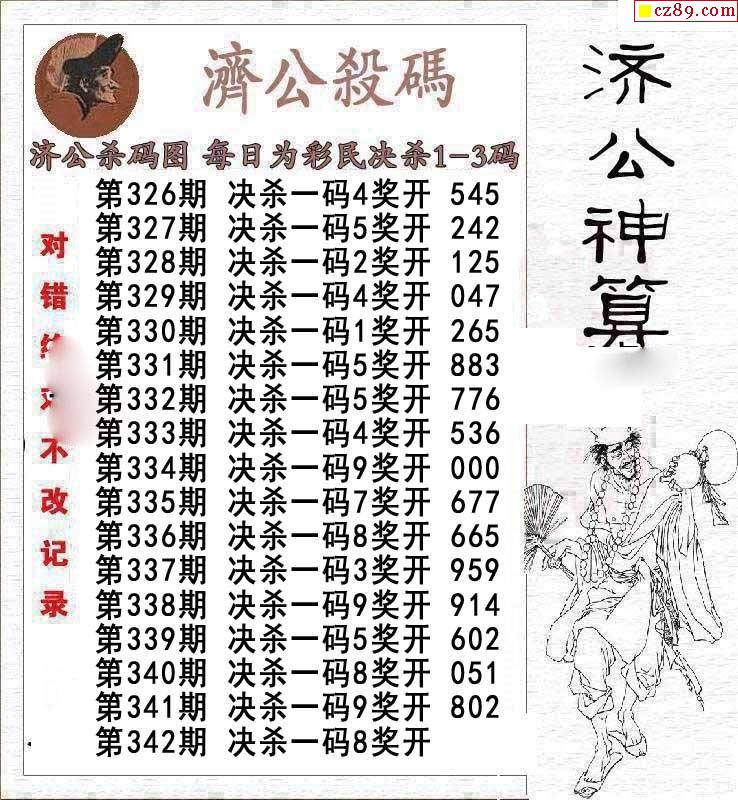 cz89.com
濟公殺碼
济公杀码图 每日为彩民决杀1-3码
第326期 决杀一码4奖开 545
第327期 决杀一码5奖开 242
第328期 决杀一码2奖开 125
第329期 决杀一码4奖开 047
第330期 决杀一码1奖开 265
第331期 决杀一码5奖开 883
第332期 决杀一码5奖开 776
第333期 决杀一码4奖开 536
第334期 决杀一码9奖开 000
第335期 决杀一码7奖开 677
第336期 决杀一码8奖开 665
第337期 决杀一码3奖开 959
第338期 决杀一码9奖开 914
第339期 决杀一码5奖开 602
第340期 决杀一码8奖开 051
第341期 决杀一码9奖开 802
第342期 决杀一码8奖开
对错不改记录
济公神算